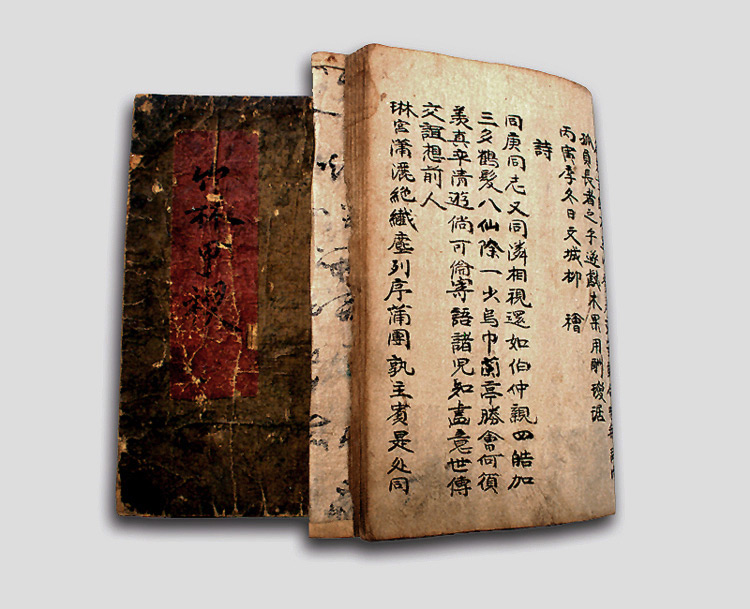 竹林甲稧
孤負長者之手遊戲木果用酬瓊琚
丙寅季冬日文城柳
詩
同庚同志又同隣相視還如伯仲親四皓加
三多鶴髮八仙除一少烏巾蘭亭勝會何須
羨真率清遊倘可倫寄語諸児知盡意世傳
交誼想前人
琳宮瀟灑絶纖塵列序蒲團孰主賓是处同